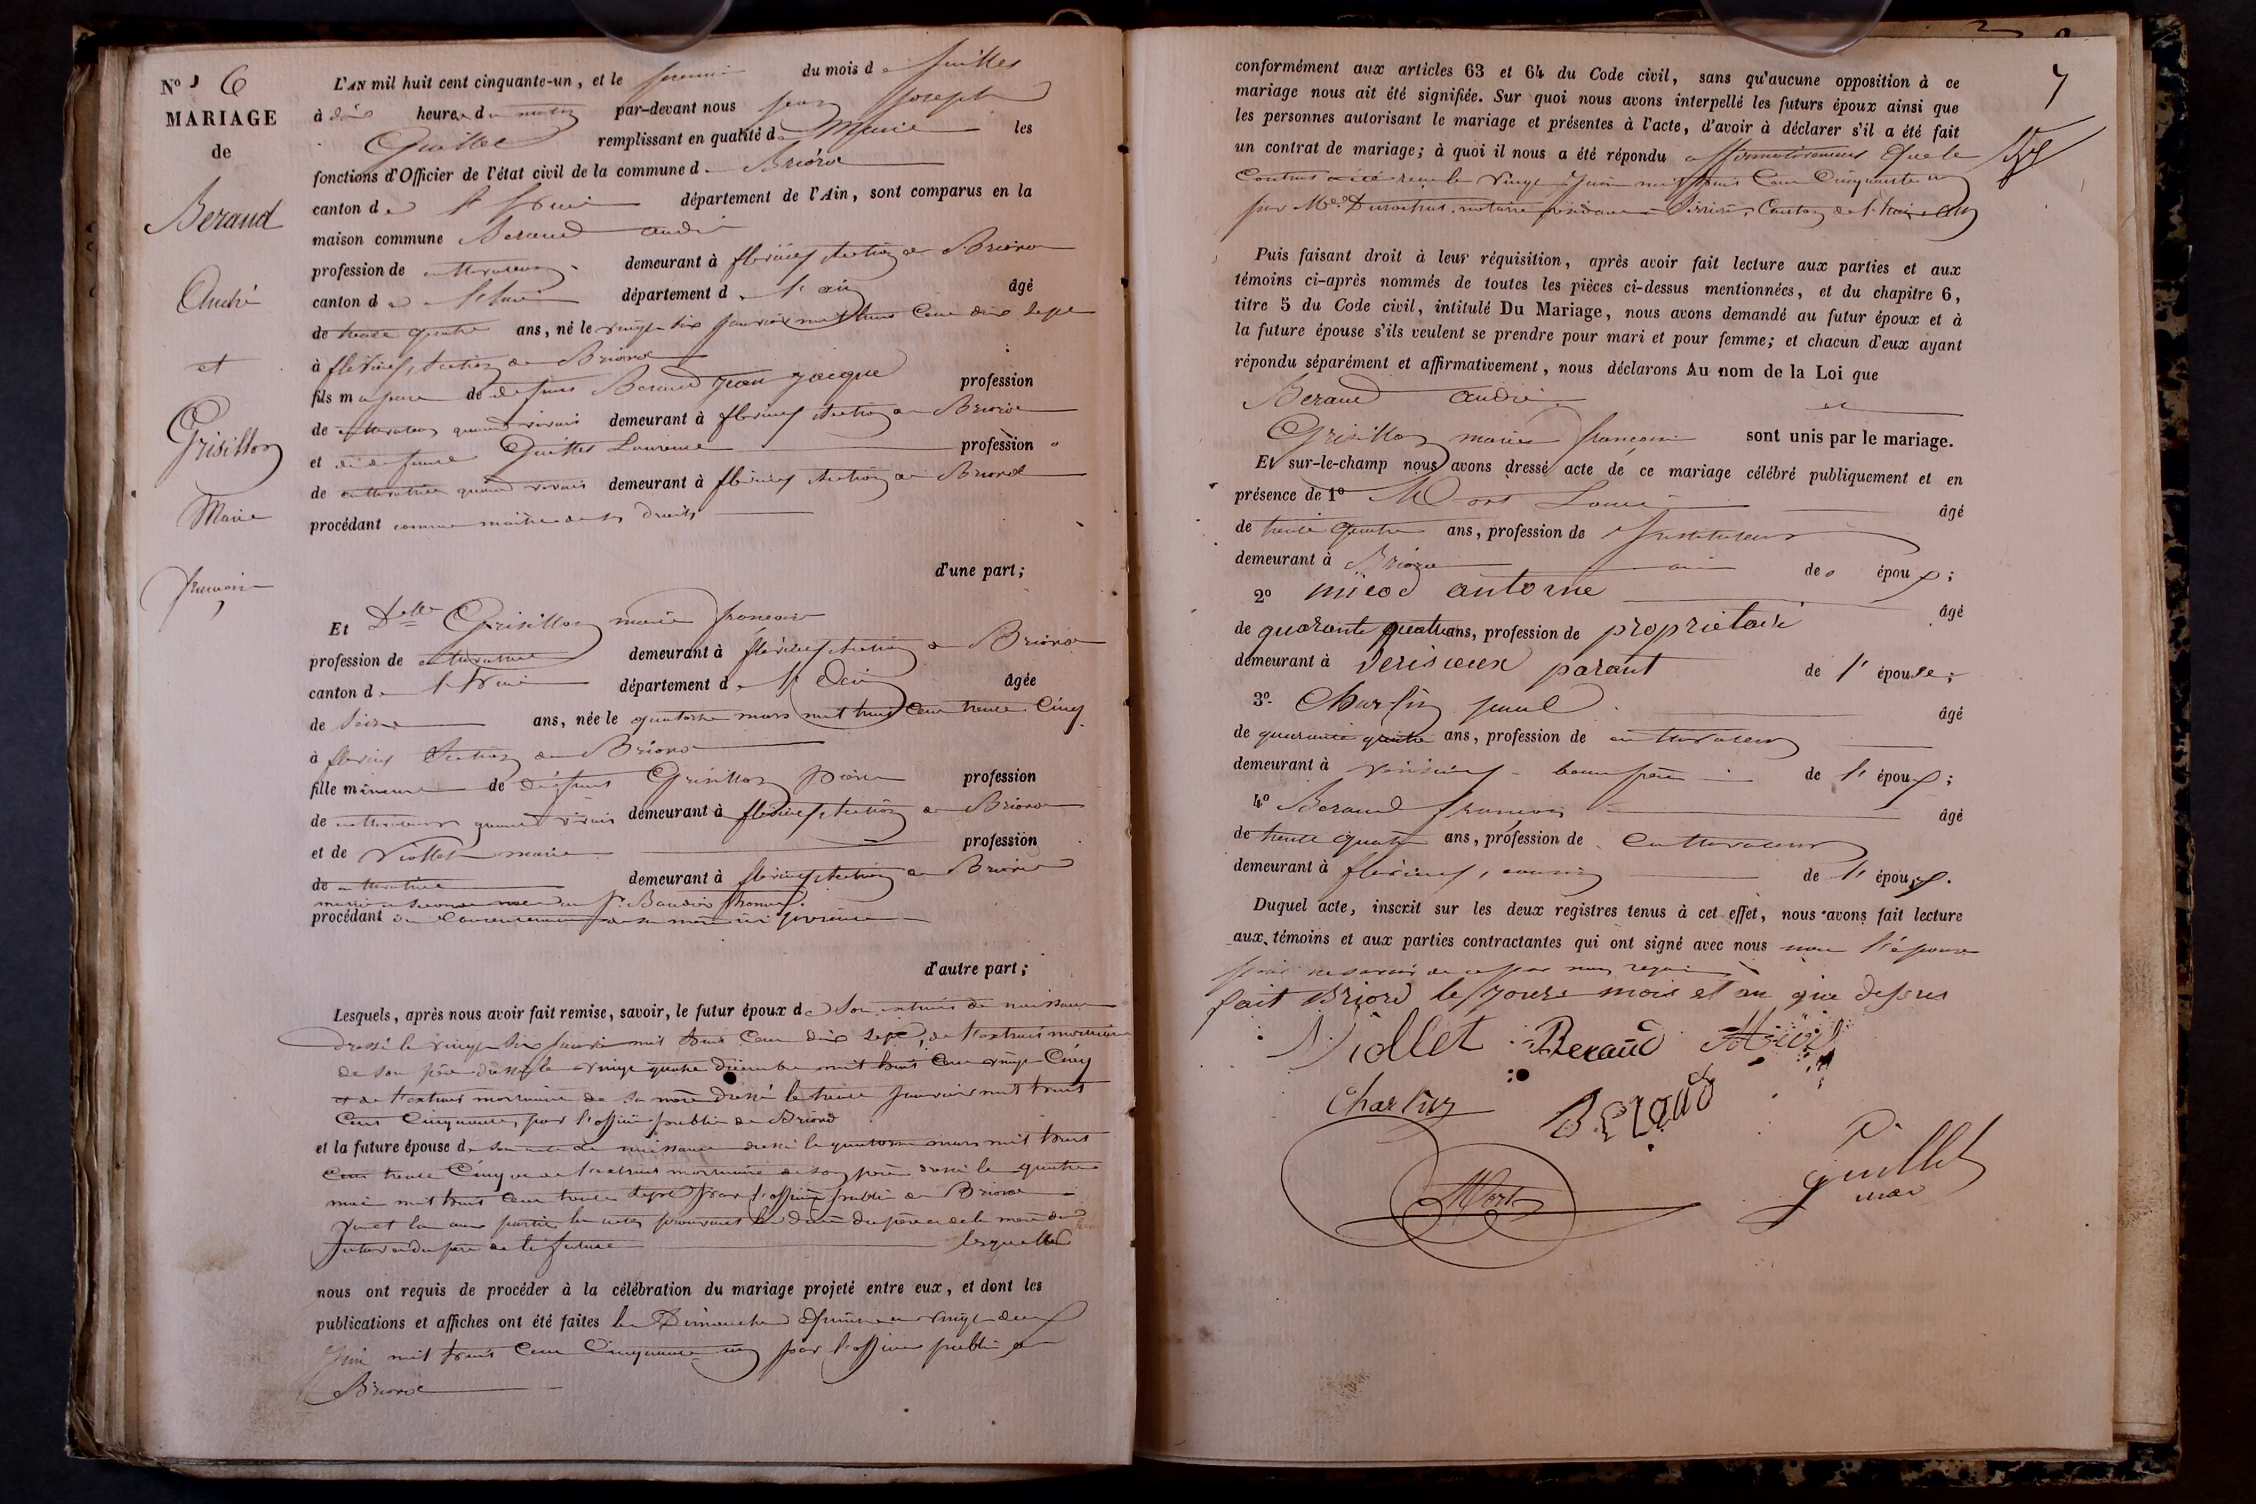 No 6
MARIAGE
de
Beraud
André
et
Grisillon
Marie
françoise
L'AN mil huit cent cinquante-un, et le premier du mois de juillet
à dix heures du matin par-devant nous jean joseph
Guillet remplissant en qualité de Maire les
fonctions d'Officier de l'état civil de la commune de Briord
canton de département de l'Ain, sont comparus en la
maison commune Beraud andré
profession de cultivateur demeurant à flévieu section de Briord
canton de département de l'ain âgé
de trente quatre ans, né le vingt six janvier mil huit cent dix sept
à flévieu, section de Briord
fils majeur de défunt Beraud jean jacque profession
de cultivateur quand vivait demeurant à flévieu section de Briord
et de défunte Guillet Laurence profession
de cultivatrice quand vivait demeurant à flévieu section de Briord
procédant comme maître de ses droits
d'une part;
Et Delle Grisillon marie françoise
profession de cultivatrice demeurant à flévieu section de Briord
canton de département de l'Ain âgée
de seize ans, née le quatorze mars mil huit cent trente cinq
à flévieu section de Briord
fille mineure de défunt Grisillon pierre profession
de cultivateur quand vivait demeurant à flévieu section de Briord
et de Viollet marie profession
de cultivatrice demeurant à flévieu section de Briord
mariée en seconde noce du Sr Baudin
procédant du consentement de sa mère ici présente
d'autre part;
Lesquels, après nous avoir fait remise, savoir, le futur époux de son extrait de naissance
dressé le vingt six janvier mil huit cent dix sept, de l'extrait mortuaire
de son père dressé le vingt quatre décembre mil huit cent vingt cinq
et de l'extrait mortuaire de sa mère dressé le treize janvier mil huit
cent cinquante, par l'officier public de Briord
et la future épouse de son acte de naissance dressé le quatorze mars mil huit
cent trente cinq et de l'extrait mortuaire de son père dressé le quatre
mai mil huit cent trente sept par l'officier public de Briord
ayant lu aux parties les actes prouvant le décès du père et de la mère du
futur et du père de la future lesquelles
nous ont requis de procéder à la célébration du mariage projeté entre eux, et dont les
publications et affiches ont été faites les Dimanches quinze et vingt deux
juin mil huit cent cinquante un par l'officier public de
Briord
7
conformément aux articles 63 et 64 du Code civil, sans qu'aucune opposition à ce
mariage nous ait été signifiée. Sur quoi nous avons interpellé les futurs époux ainsi que
les personnes autorisant le mariage et présentes à l'acte, d'avoir à déclarer s'il a été fait
un contrat de mariage; à quoi il nous a été répondu affirmativement que le
contrat a été reçu le vingt juin mil huit cent cinquante un
par Me notaire canton de
Puis faisant droit à leur réquisition, après avoir fait lecture aux parties et aux
témoins ci-après nommés de toutes les pièces ci-dessus mentionnées, et du chapitre 6,
titre 5 du Code civil, intitulé Du Mariage, nous avons demandé au futur époux et à
la future épouse s'ils veulent se prendre pour mari et pour femme; et chacun d'eux ayant
répondu séparément et affirmativement, nous déclarons Au nom de la Loi que
Beraud andré et
Grisillon marie françoise sont unis par le mariage.
Et sur-le-champ nous avons dressé acte de ce mariage célébré publiquement et en
présence de 1º Mort Louis âgé
de trente quatre ans, profession de Instituteur
demeurant à Briord ami de époux;
2º miéod antoine âgé
de quarante quatre ans, profession de propriétaire
demeurant à verisieux parant de l'épouse;
3º Charlin paul âgé
de quarante quatre ans, profession de cultivateur
demeurant à beau frère de l'époux;
4º Beraud françois âgé
de trente quatre ans, profession de cultivateur
demeurant à flévieu, cousin de l'époux.
Duquel acte, inscrit sur les deux registres tenus à cet effet, nous avons fait lecture
aux témoins et aux parties contractantes qui ont signé avec nous non l'épouse
pour ne savoir de ce par nous requise
fait Briord les jours mois et an que dessus
Viollet Beraud
Charlin Beraud
Mort
guillet
mar